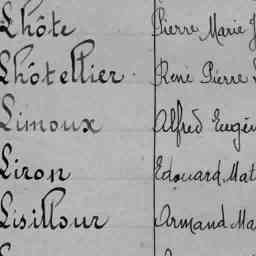 Lhôte Pierre Marie J
Lhôtellier René Pierre
Limoux Alfred Eugèn
Liron Edouard Mat
Lisillour Armand Ma